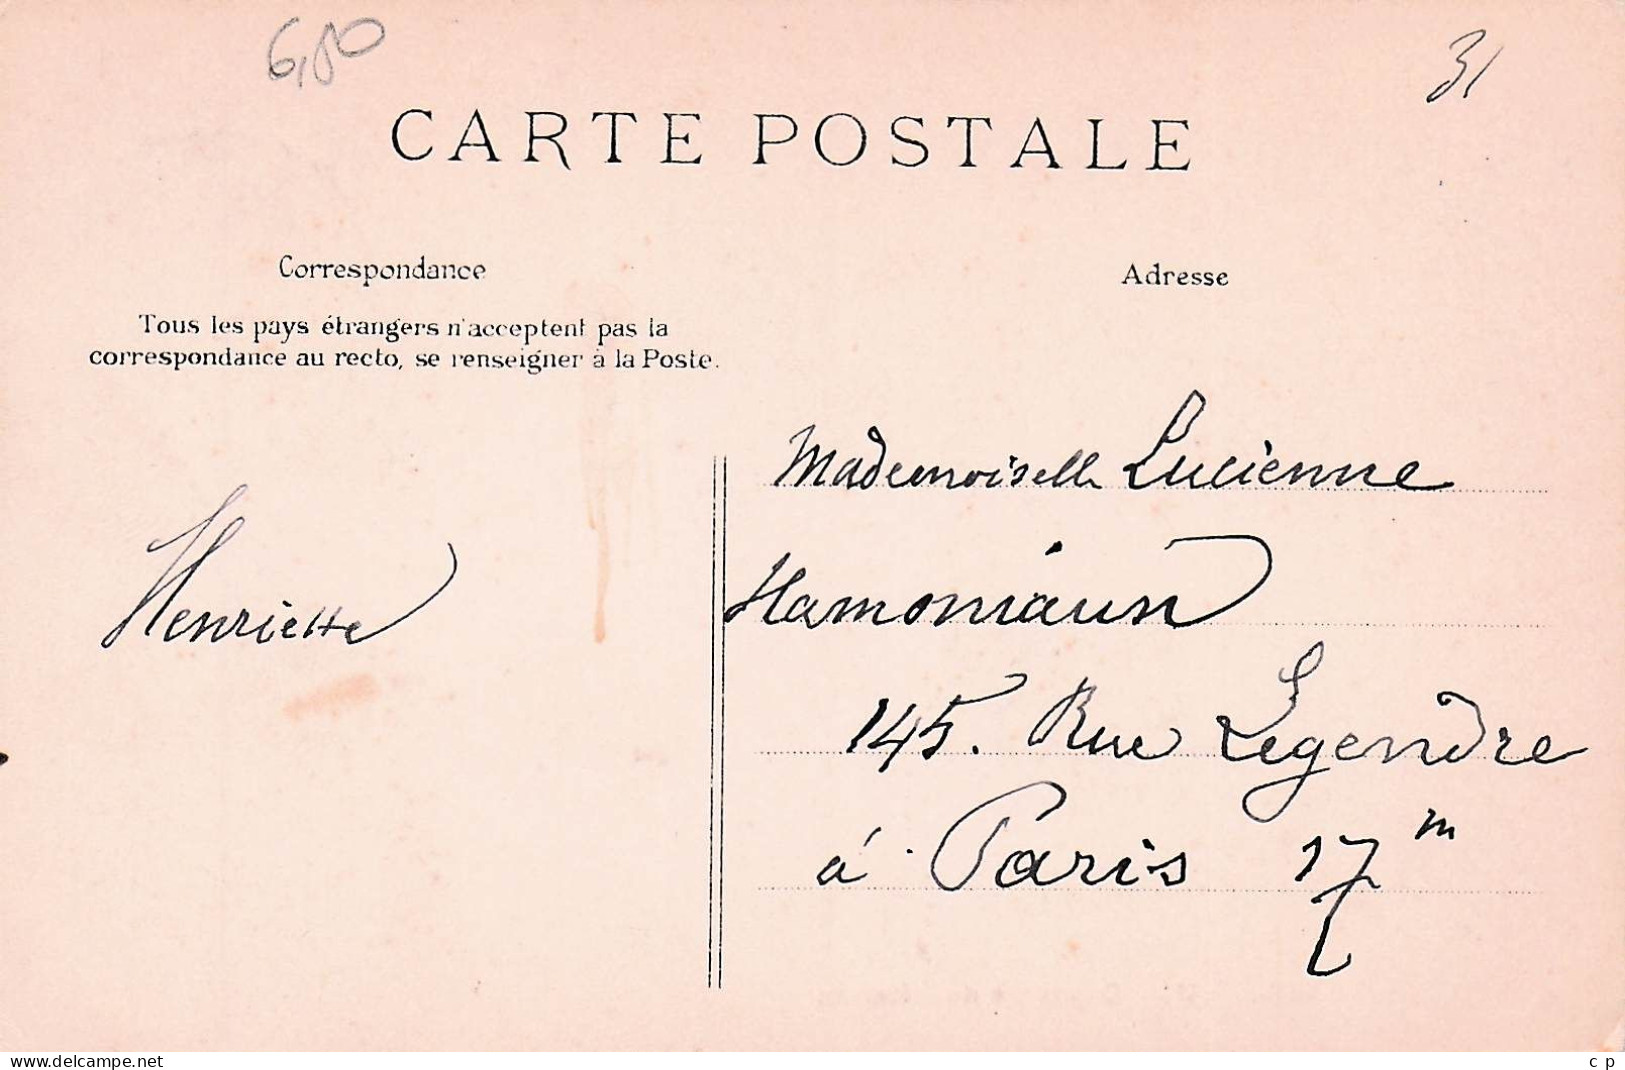 6,80
31
CARTE POSTALE
Correspondance
Adresse
Tous les pays étrangers n'acceptent pas la
correspondance au recto, se renseigner à la Poste.
Mademoiselle Lucienne
Henriette
145. Rue Legendre
à Paris 17 m
www.delcampe.net
c p